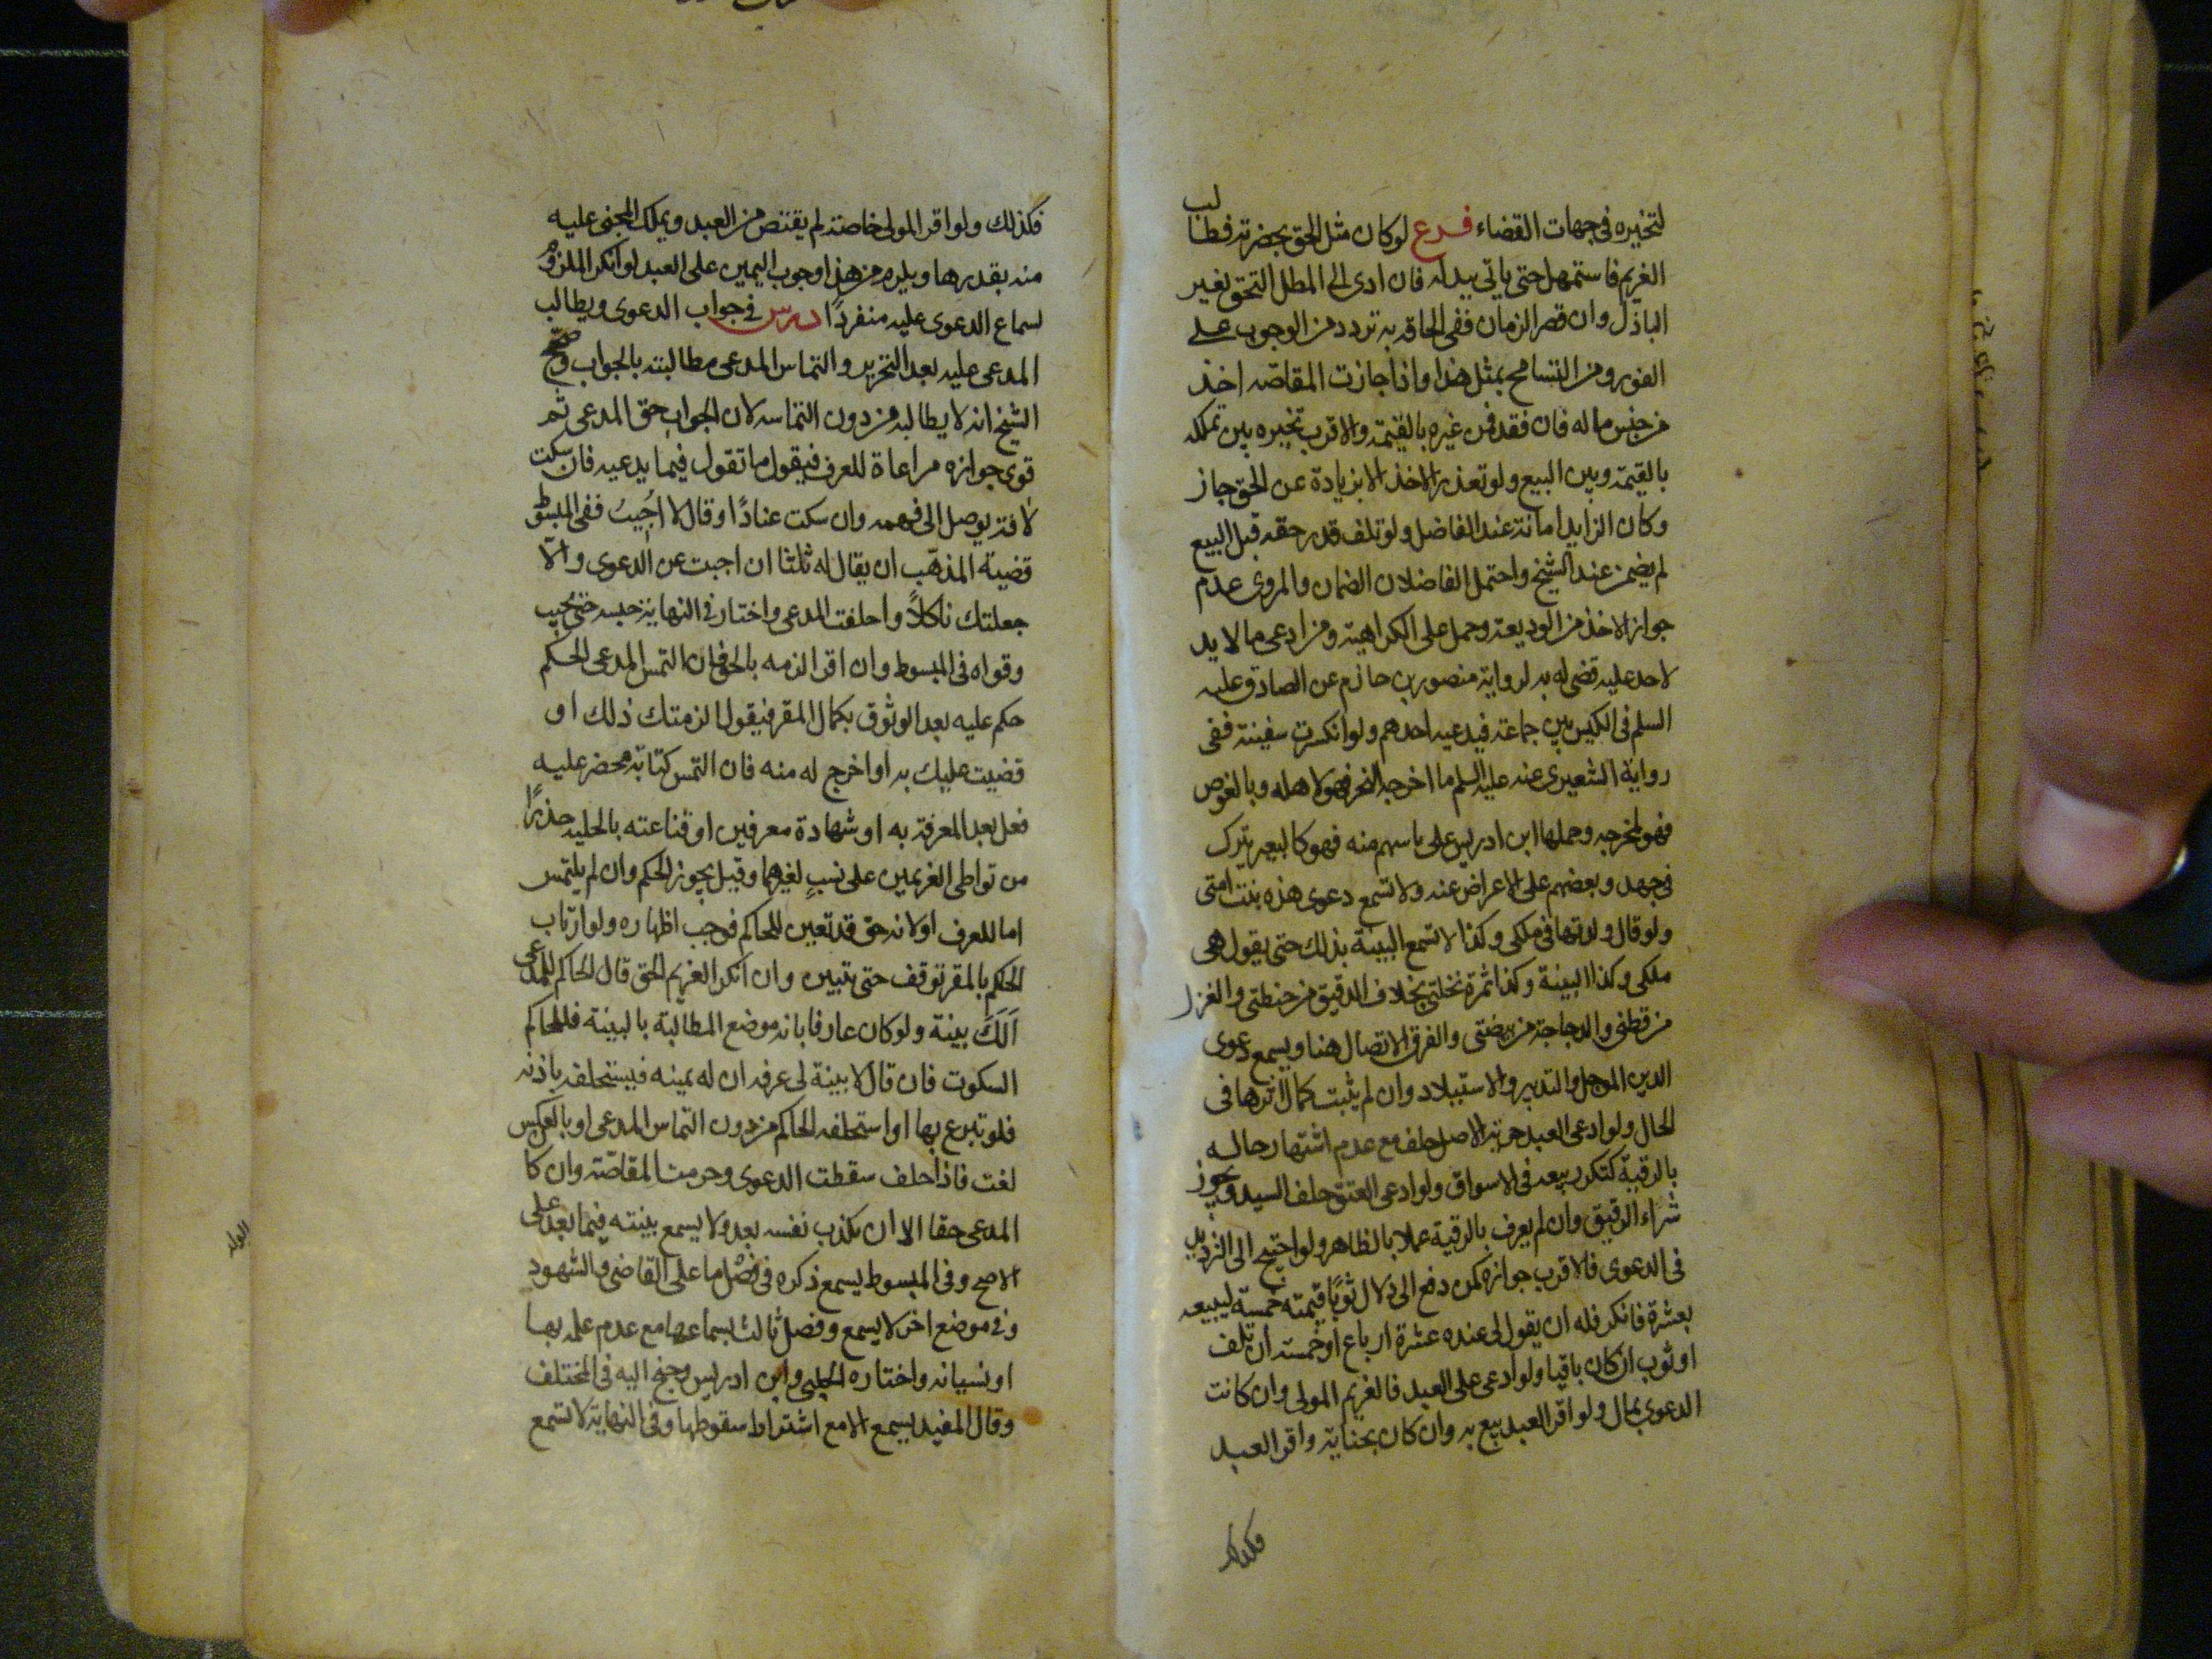 لتخيره في جهات القضاء فرع لو كان مثل الحق بحضرته فطالب
الغريم فاستمهل حتى ياتي ببدله فان ادى الى المطل التحق بغير
الباذل وان قصر الزمان ففي الحاقه به تردد من الوجوب على
الفور ومن التسامح بمثل هذا واذا جازت المقاصه اخذ
من جنس ماله فان فقد فمن غيره بالقيمة والاقرب تخييره بين تملكه
بالقيمة وبين البيع ولو تعذر الاخذ الا بزيادة عن الحق جاز
وكان الزايد امانة عند الفاضل ولو تلف قدر حقه قبل البيع
لم يضمن عند الشيخ واحتمل الفاضلان الضمان والمروي عدم
جواز الاخذ من الوديعة وحمل على الكراهية ومن ادعى ما لا يد
لاحد عليه قضى له به لرواية منصور بن حازم عن الصادق عليه
السلم في الكيس بين جماعة فيدعيه احدهم ولو انكسرت سفينة ففي
رواية الشعيري عنه عليه السلم ما اخرجه البحر فهو لاهله وبالغوص
فهو لمخرجه وحملها ابن ادريس على ما يئس منه فهو كالبعير يترك
في جهد وبعضهم على الاعراض عنه ولا تسمع دعوى هذه بنت امتي
ولو قال ولدتها في ملكي وكذا لا تسمع البينة بذلك حتى يقول هي
ملكي وكذا البينة وكذا ثمرة نخلتي بخلاف الدقيق من حنطتي والغزل
من قطني والدجاجة من بيضتي والفرق الاتصال هنا ويسمع دعوى
الدين الموجل والتدبير والاستيلاد وان لم يثبت كمال اثرها في
الحال ولو ادعى العبد حرية الاصل حلف مع عدم اشتهار حاله
بالرقية كتكرر بيعه في الاسواق ولو ادعى العتق حلف السيد ويجوز
شراء الرقيق وان لم يعرف بالرقية عملا بالظاهر ولو احتيج الى الترديد
في الدعوى فالاقرب جوازه كمن دفع الى دلال ثوبا قيمته خمسة ليبيعه
بعشرة فانكر فله ان يقول لي عنده عشرة ان باع او خمسة ان تلف
او ثوب ان كان باقيا ولو ادعى على العبد فالغريم المولى وان كانت
الدعوى بمال ولو اقر العبد بيع به وان كان بجناية واقر العبد
فكذلك
فكذلك ولو اقر المولى خاصة لم يقتص من العبد ويملك المجني عليه
منه بقدرها ويلزم من هذا وجوب اليمين على العبد لو انكر الملزوم
لسماع الدعوى عليه منفردًا درس في جواب الدعوى ويطالب
المدعى عليه بعد التحرير والتماس المدعي مطالبته بالجواب وصحح
الشيخ انه لا يطالبه من دون التماسه لان الجواب حق المدعي ثم
قوى جوازه مراعاة للعرف فيقول ما تقول فيما يدعيه فان سكت
لافة يوصل الى فهمه وان سكت عنادًا او قال لا اُجيبُ ففي المبسوط
قضية المذهب ان يقال له ثلثا ان اجبت عن الدعوى والا
جعلتك ناكلاً واحلفت المدعي واختار في النهاية حبسه حتى يجيب
وقواه في المبسوط وان اقر الزمه بالحق فان التمس المدعي الحكم
حكم عليه بعد الوثوق بكمال المقر فيقول الزمتك ذلك او
قضيت عليك به او اخرج له منه فان التمس كتابة محضر عليه
فعل بعد المعرفة به او شهادة معرفين او قناعته بالحلية حذرًا
من تواطى الغريمين على نسبٍ لغيرهما وقيل يجوز الحكم وان لم يلتمس
اما للعرف او لانه حق قد تعين للحاكم فوجب اظهاره ولو ارتاب
الحكم بالمقر توقف حتى يتبين وان انكر الغريم الحق قال الحاكم للمدعى
اَلَكَ بينة ولو كان عارفا بانه موضع المطالبة بالبينة فللحاكم
السكوت فان قال لا بينة لي عرفه ان له يمينه فيستحلفه باذنه
فلو تبرع بها او استحلفه الحاكم من دون التماس المدعي او بالعكس
لغت فاذا حلف سقطت الدعوى وحرمت المقاصّة وان كا
المدعى حقا الا ان يكذب نفسه بعد ولا يسمع بينته فيما بعد على
الاصح وفي المبسوط يسمع ذكره في فصل ما على القاضي والشهود
وفي موضع اخر لا يسمع وفصل ثالث بسماعها مع عدم علمه بها
او نسيانه واختاره الحلبي وابن ادريس وجنح اليه في المختلف
وقال المفيد يسمع الا مع اشتراط سقوطها وفي النهاية لا تسمع